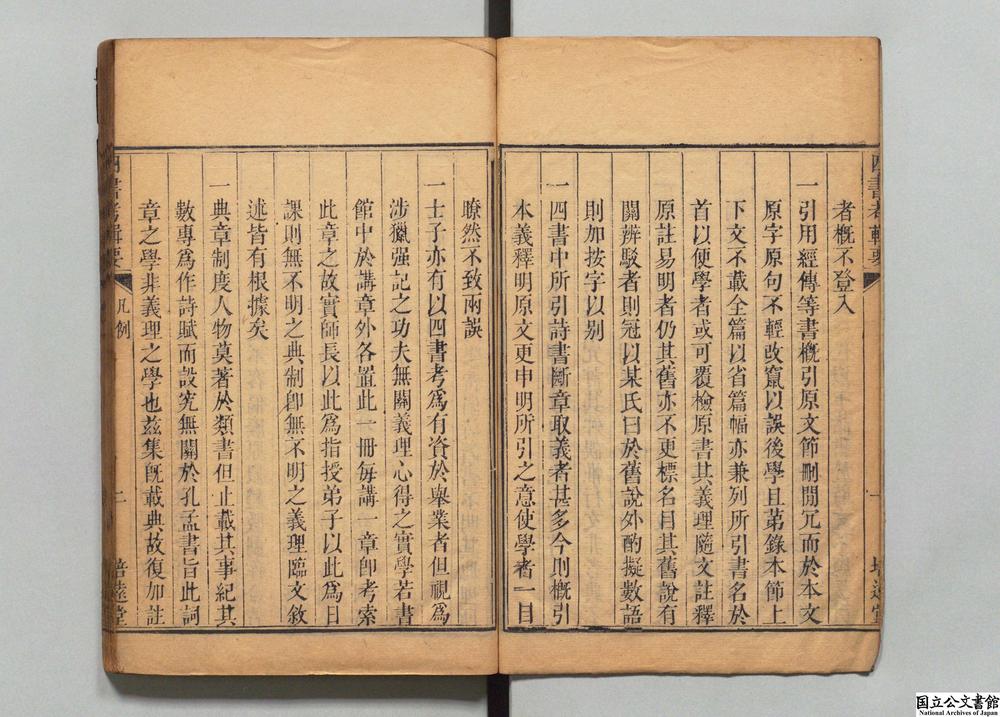 四書考輯要
者概不登入
一引用經傳等書概引原文節刪閒冗而於本文
原字原句不輕改竄以誤後學且苐錄本節上
下文不載全篇以省篇幅亦兼列所引書名於
首以便學者或可覆檢原書其義理隨文註釋
原註易明者仍其舊亦不更標名目其舊說有
闢辨駁者則冠以某氏曰於舊說外酌擬數語
則加按字以别
一四書中所引詩書斷章取義者甚多今則概引
本義釋明原文更申明所引之意使學者一目
瞭然不致兩誤
一士子亦有以四書考爲有資於舉業者但視爲
涉獵强記之功夫無關義理心得之實學若書
館中於講章外各置此一冊每講一章卽考索
此章之故實師長以此爲指授弟子以此爲日
課則無不明之典制卽無不明之義理臨文敘
述皆有根據矣
一典章制度人物莫著於類書但止載其事紀其
數專爲作詩賦而設究無關於孔孟書旨此詞
章之學非義理之學也兹集旣載典故復加註
四書考輯要
凡例
二
培遠堂
国立公文書館
National Archives of Japan